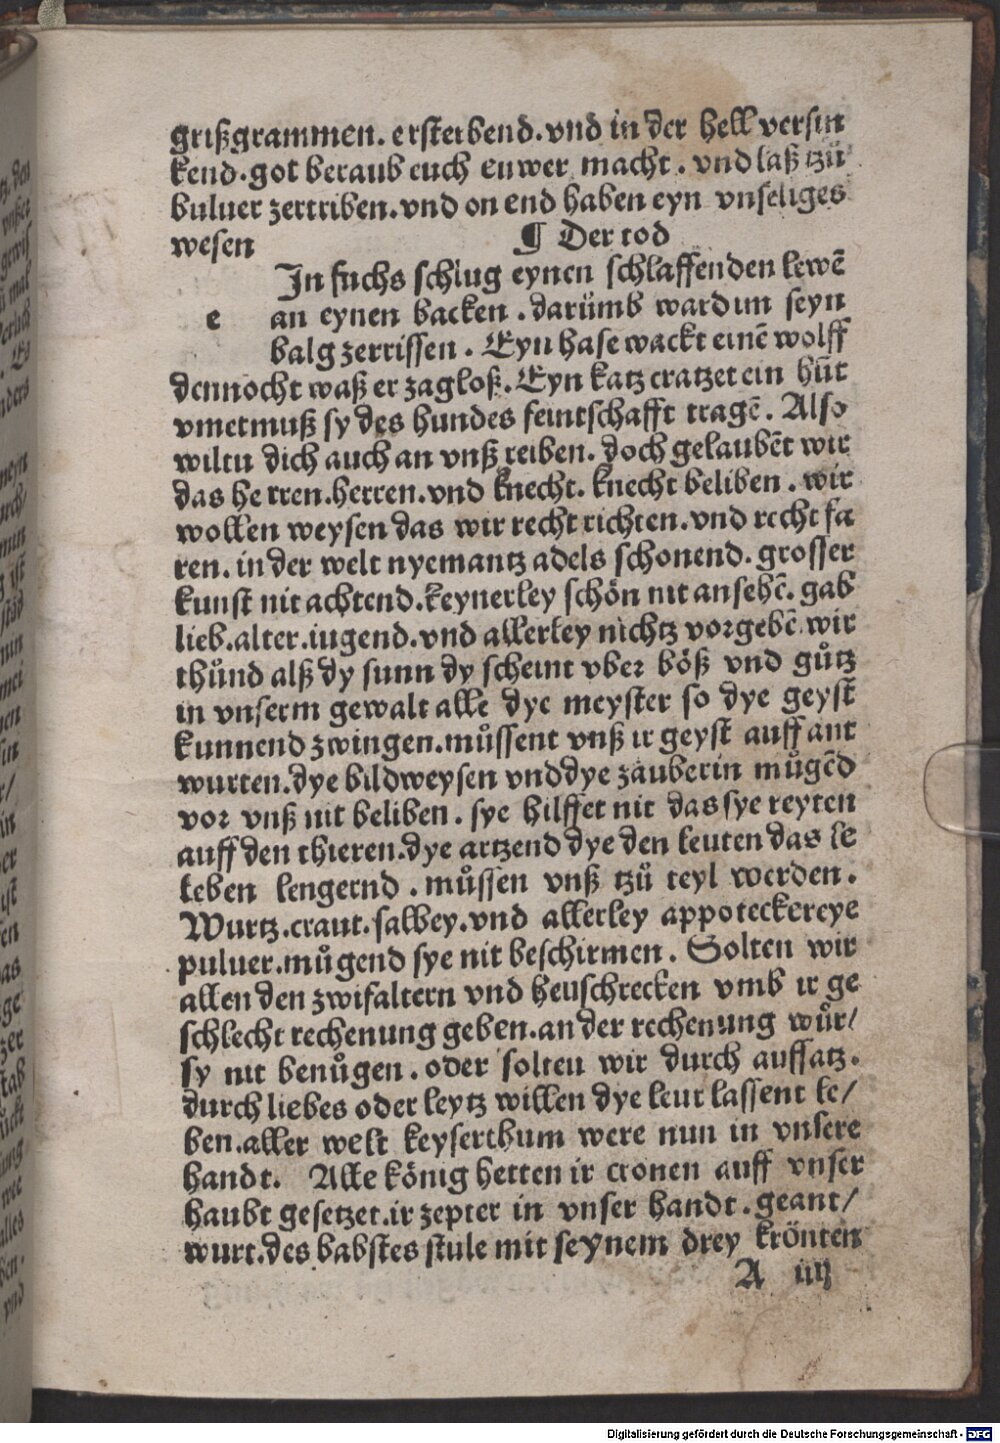 grißgrammen. ersterbend. vnd in der hell versin
kend. got beraub euch euwer macht. vnd laß tzů
buluer zertriben. vnd on end haben eyn vnseliges
wesen ¶ Der tod
In fuchs schlug eynen schlaffenden lewē
e an eynen backen. darümb ward im seyn
balg zerrissen. Eyn hase wackt einē wolff
dennocht waß er zagloß. Eyn katz cratzet ein hūt
vmetmuß sy des hundes feintschafft tragē. Also
wiltu dich auch an vnß reiben. doch gelaubēt wir
das he rren. herren. vnd knecht. knecht beliben. wir
wollen weysen das wir recht richten. vnd recht fa
ren. in der welt nyemantz adels schonend. grosser
kunst nit achtend. keynerley schön nit ansehē. gab
lieb. alter. iugend. vnd allerley nichtz vorgebē wir
thůnd alß dy sunn dy scheint vber böß vnd gůtz
in vnserm gewalt alle dye meyster so dye geyst
kunnend zwingen. můssent vnß ir geyst auff ant
wurten. dye bildweysen vnd dye zauberin můgēd
vor vnß nit beliben. sye hilffet nit das sye reyten
auff den thieren. dye artzend dye den leuten das le
leben lengernd. můssen vnß tzů teyl werden.
Wurtz. craut. salbey. vnd allerley appoteckereye
puluer. můgend sye nit beschirmen. Solten wir
allen den zwifaltern vnd heuschrecken vmb ir ge
schlecht rechenung geben. an der rechenung wůr/
sy nit benůgen. oder solten wir durch auffsatz.
durch liebes oder leytz willen dye leut lassent le/
ben. aller welt keyserthum were nun in vnsere
handt. Alle könig hetten ir cronen auff vnser
haubt gesetzet. ir zepter in vnser handt. geant/
wurt. des babstes stule mit seynem drey krönten
A iiij
Digitalisierung gefördert durch die Deutsche Forschungsgemeinschaft - DFG